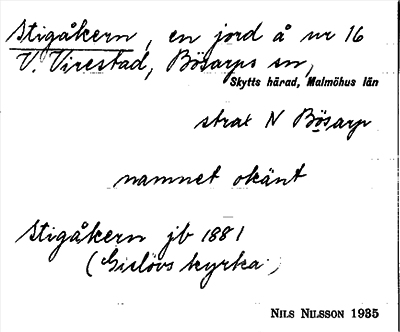 Stigåkern, en jord å nr 16
V. Virestad, Bösarps sn,
Skytts härad, Malmöhus län
strax N Bösarp
namnet okänt
Stigåkern jb 1881
(Gislövs kyrka)
NILS NILSSON 1935